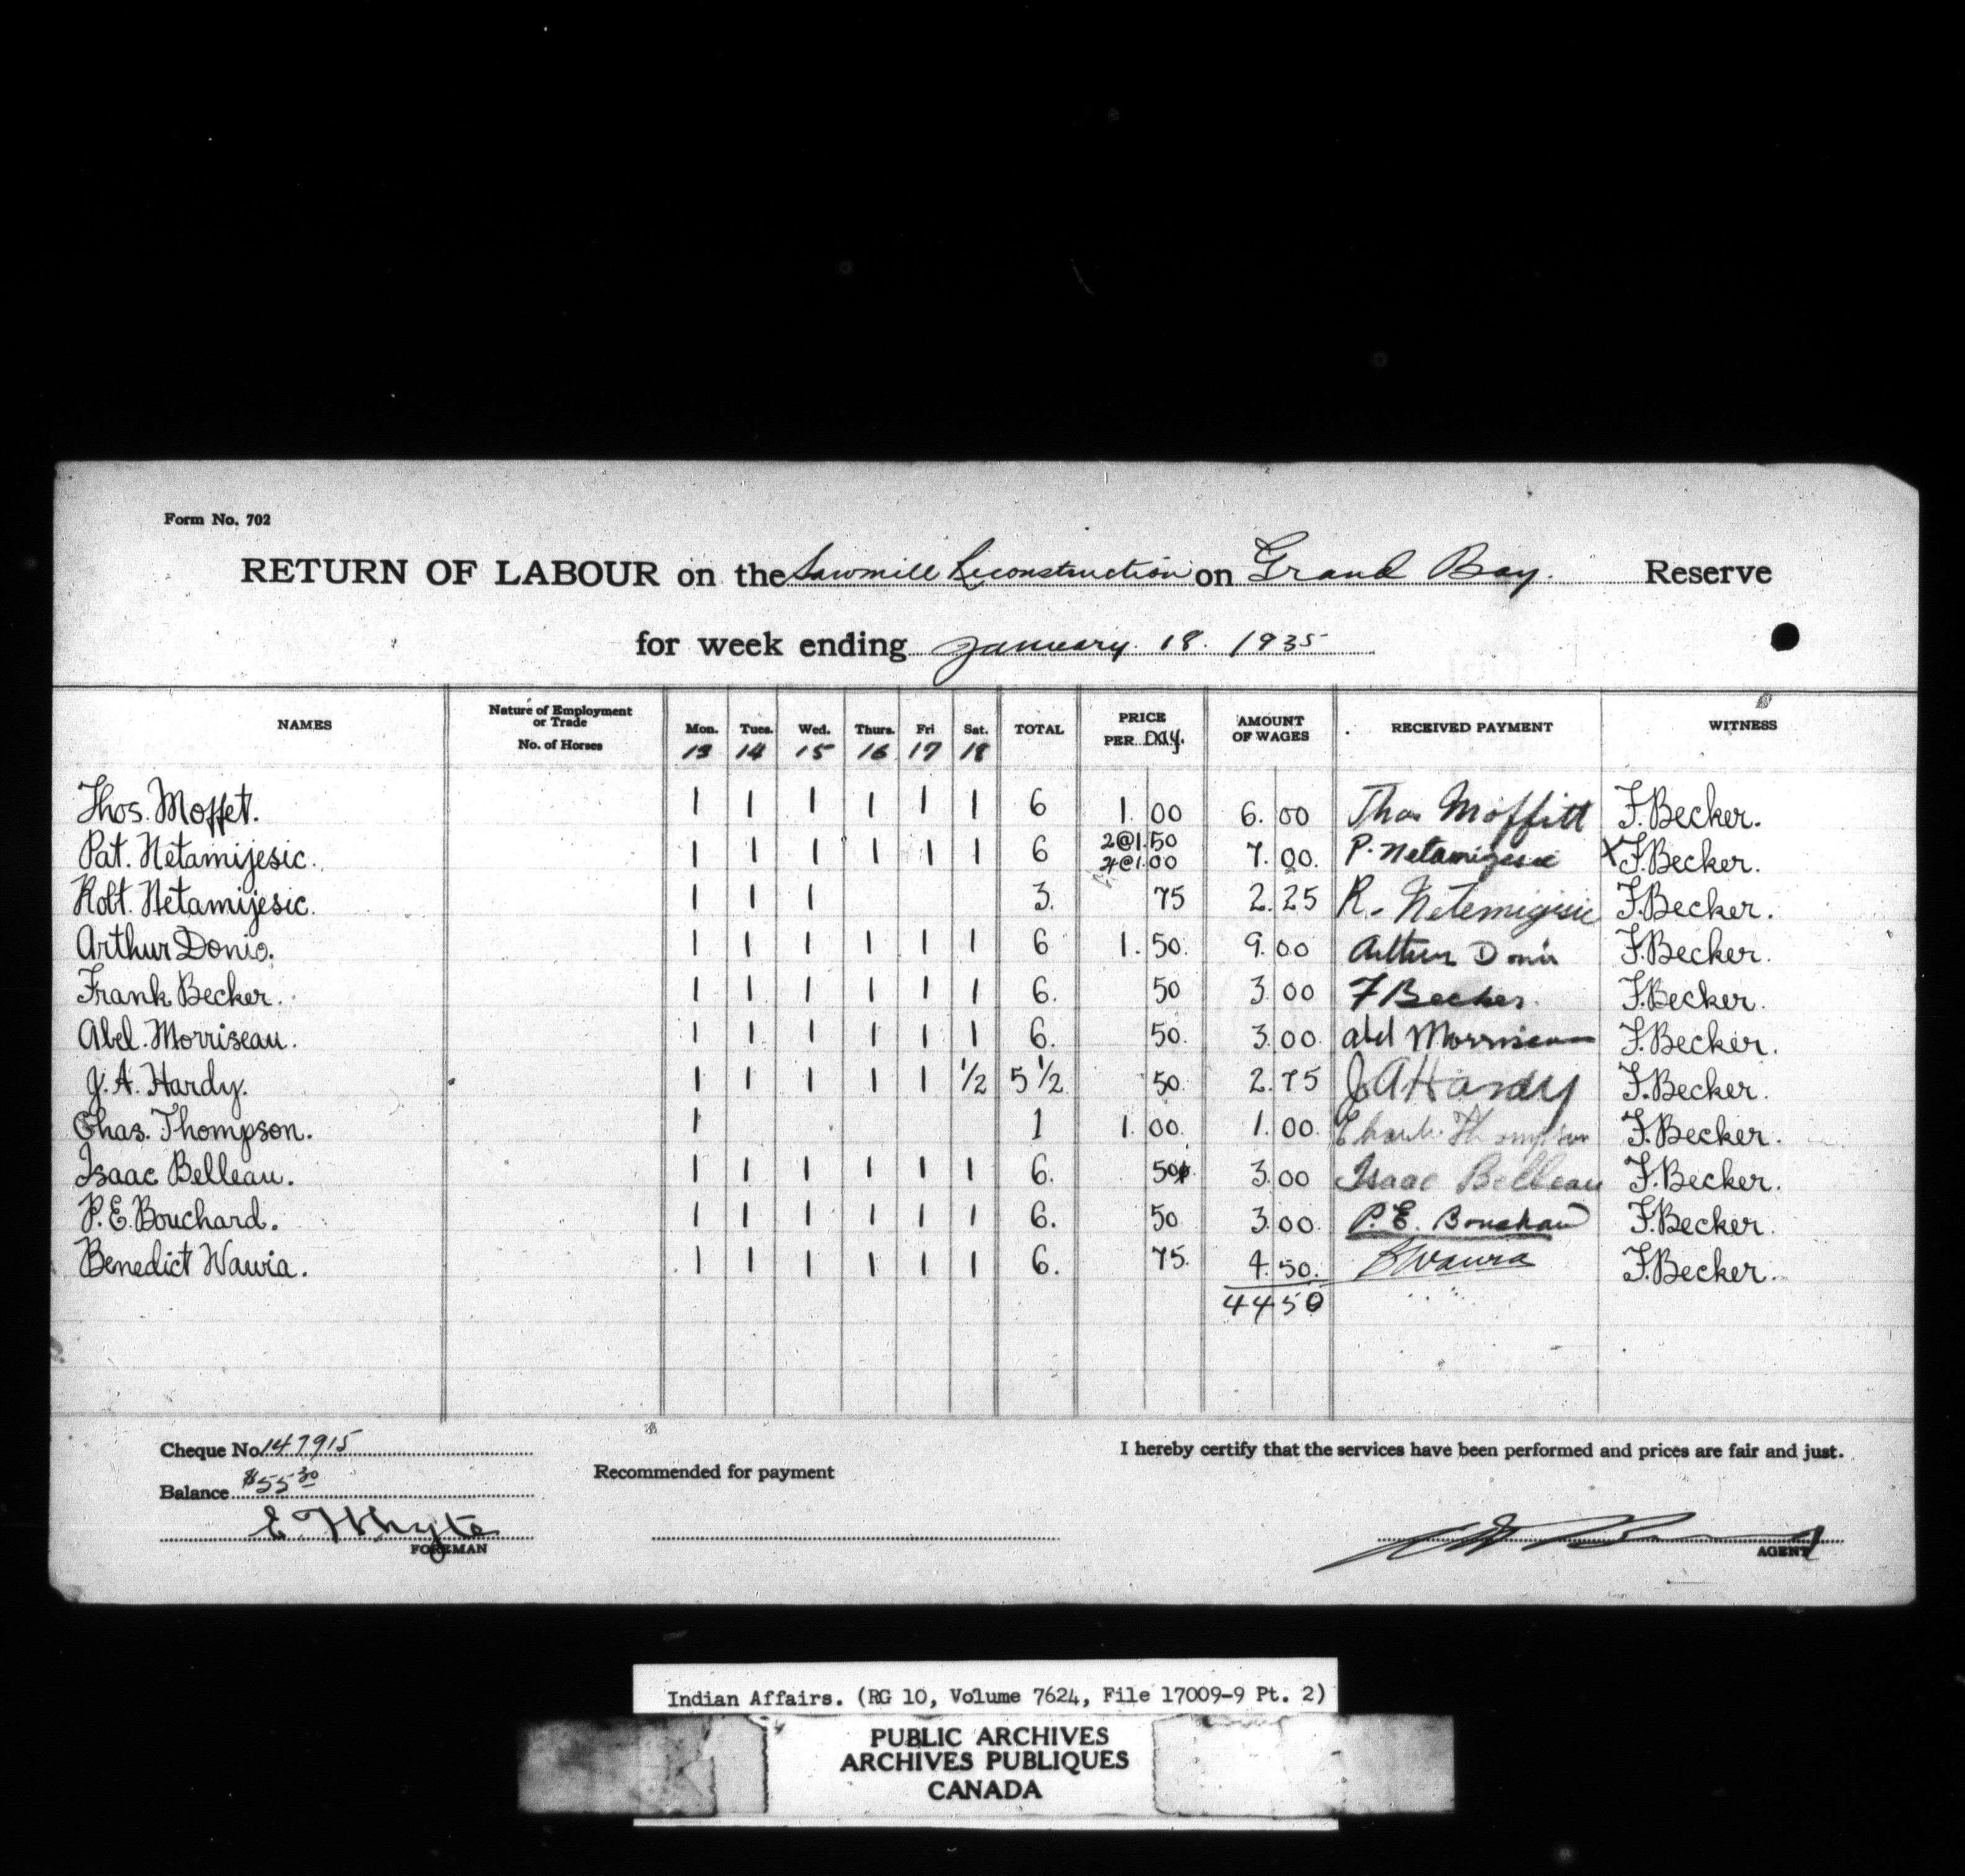 Form No. 702
RETURN OF LABOUR on the Sawmill Reconstruction on Grand Bay. Reserve
for week ending January 18. 1935
NAMES Nature of Employment or Trade No. of Horses Mon. 13 Tues. 14 Wed. 15 Thurs. 16 Fri 17 Sat. 18 TOTAL PRICE PER DAY. AMOUNT OF WAGES RECEIVED PAYMENT WITNESS
Thos. Moffet. 1 1 1 1 1 1 6 1.00 6.00 Thos Moffitt F. Becker.
Pat. Netamijesic. 1 1 1 1 1 1 6 2@1.50 4@1.00 7.00. P. Netamigesic X F. Becker.
Robt. Netamijesic. 1 1 1 3. 75 2.25 R. Netemigisic F. Becker.
Arthur Donio. 1 1 1 1 1 1 6 1.50. 9.00 Arthur Donio F. Becker.
Frank Becker. 1 1 1 1 1 1 6. 50 3.00 F Becker. F. Becker.
Abel. Morriseau. 1 1 1 1 1 1 6. 50. 3.00. Abel Morriseau F. Becker.
J. A. Hardy. 1 1 1 1 1 1/2 5 1/2 50. 2.75 J A Hardy F. Becker.
Chas. Thompson. 1 1 1.00. 1.00. Charle Thompson F. Becker.
Isaac Belleau. 1 1 1 1 1 1 6. 50¢. 3.00 Isaac Belleau F. Becker.
P. E. Bouchard. 1 1 1 1 1 1 6. 50 3.00. P. E. Boushaw F. Becker.
Benedict Wawia. 1 1 1 1 1 1 6. 75. 4.50. B Wawia F. Becker.
44 50
Cheque No. 147915 I hereby certify that the services have been performed and prices are fair and just.
Balance $55 30 Recommended for payment
E T Whyte
FOREMAN AGENT
Indian Affairs. (RG 10, Volume 7624, File 17009-9 Pt. 2)
PUBLIC ARCHIVES
ARCHIVES PUBLIQUES
CANADA